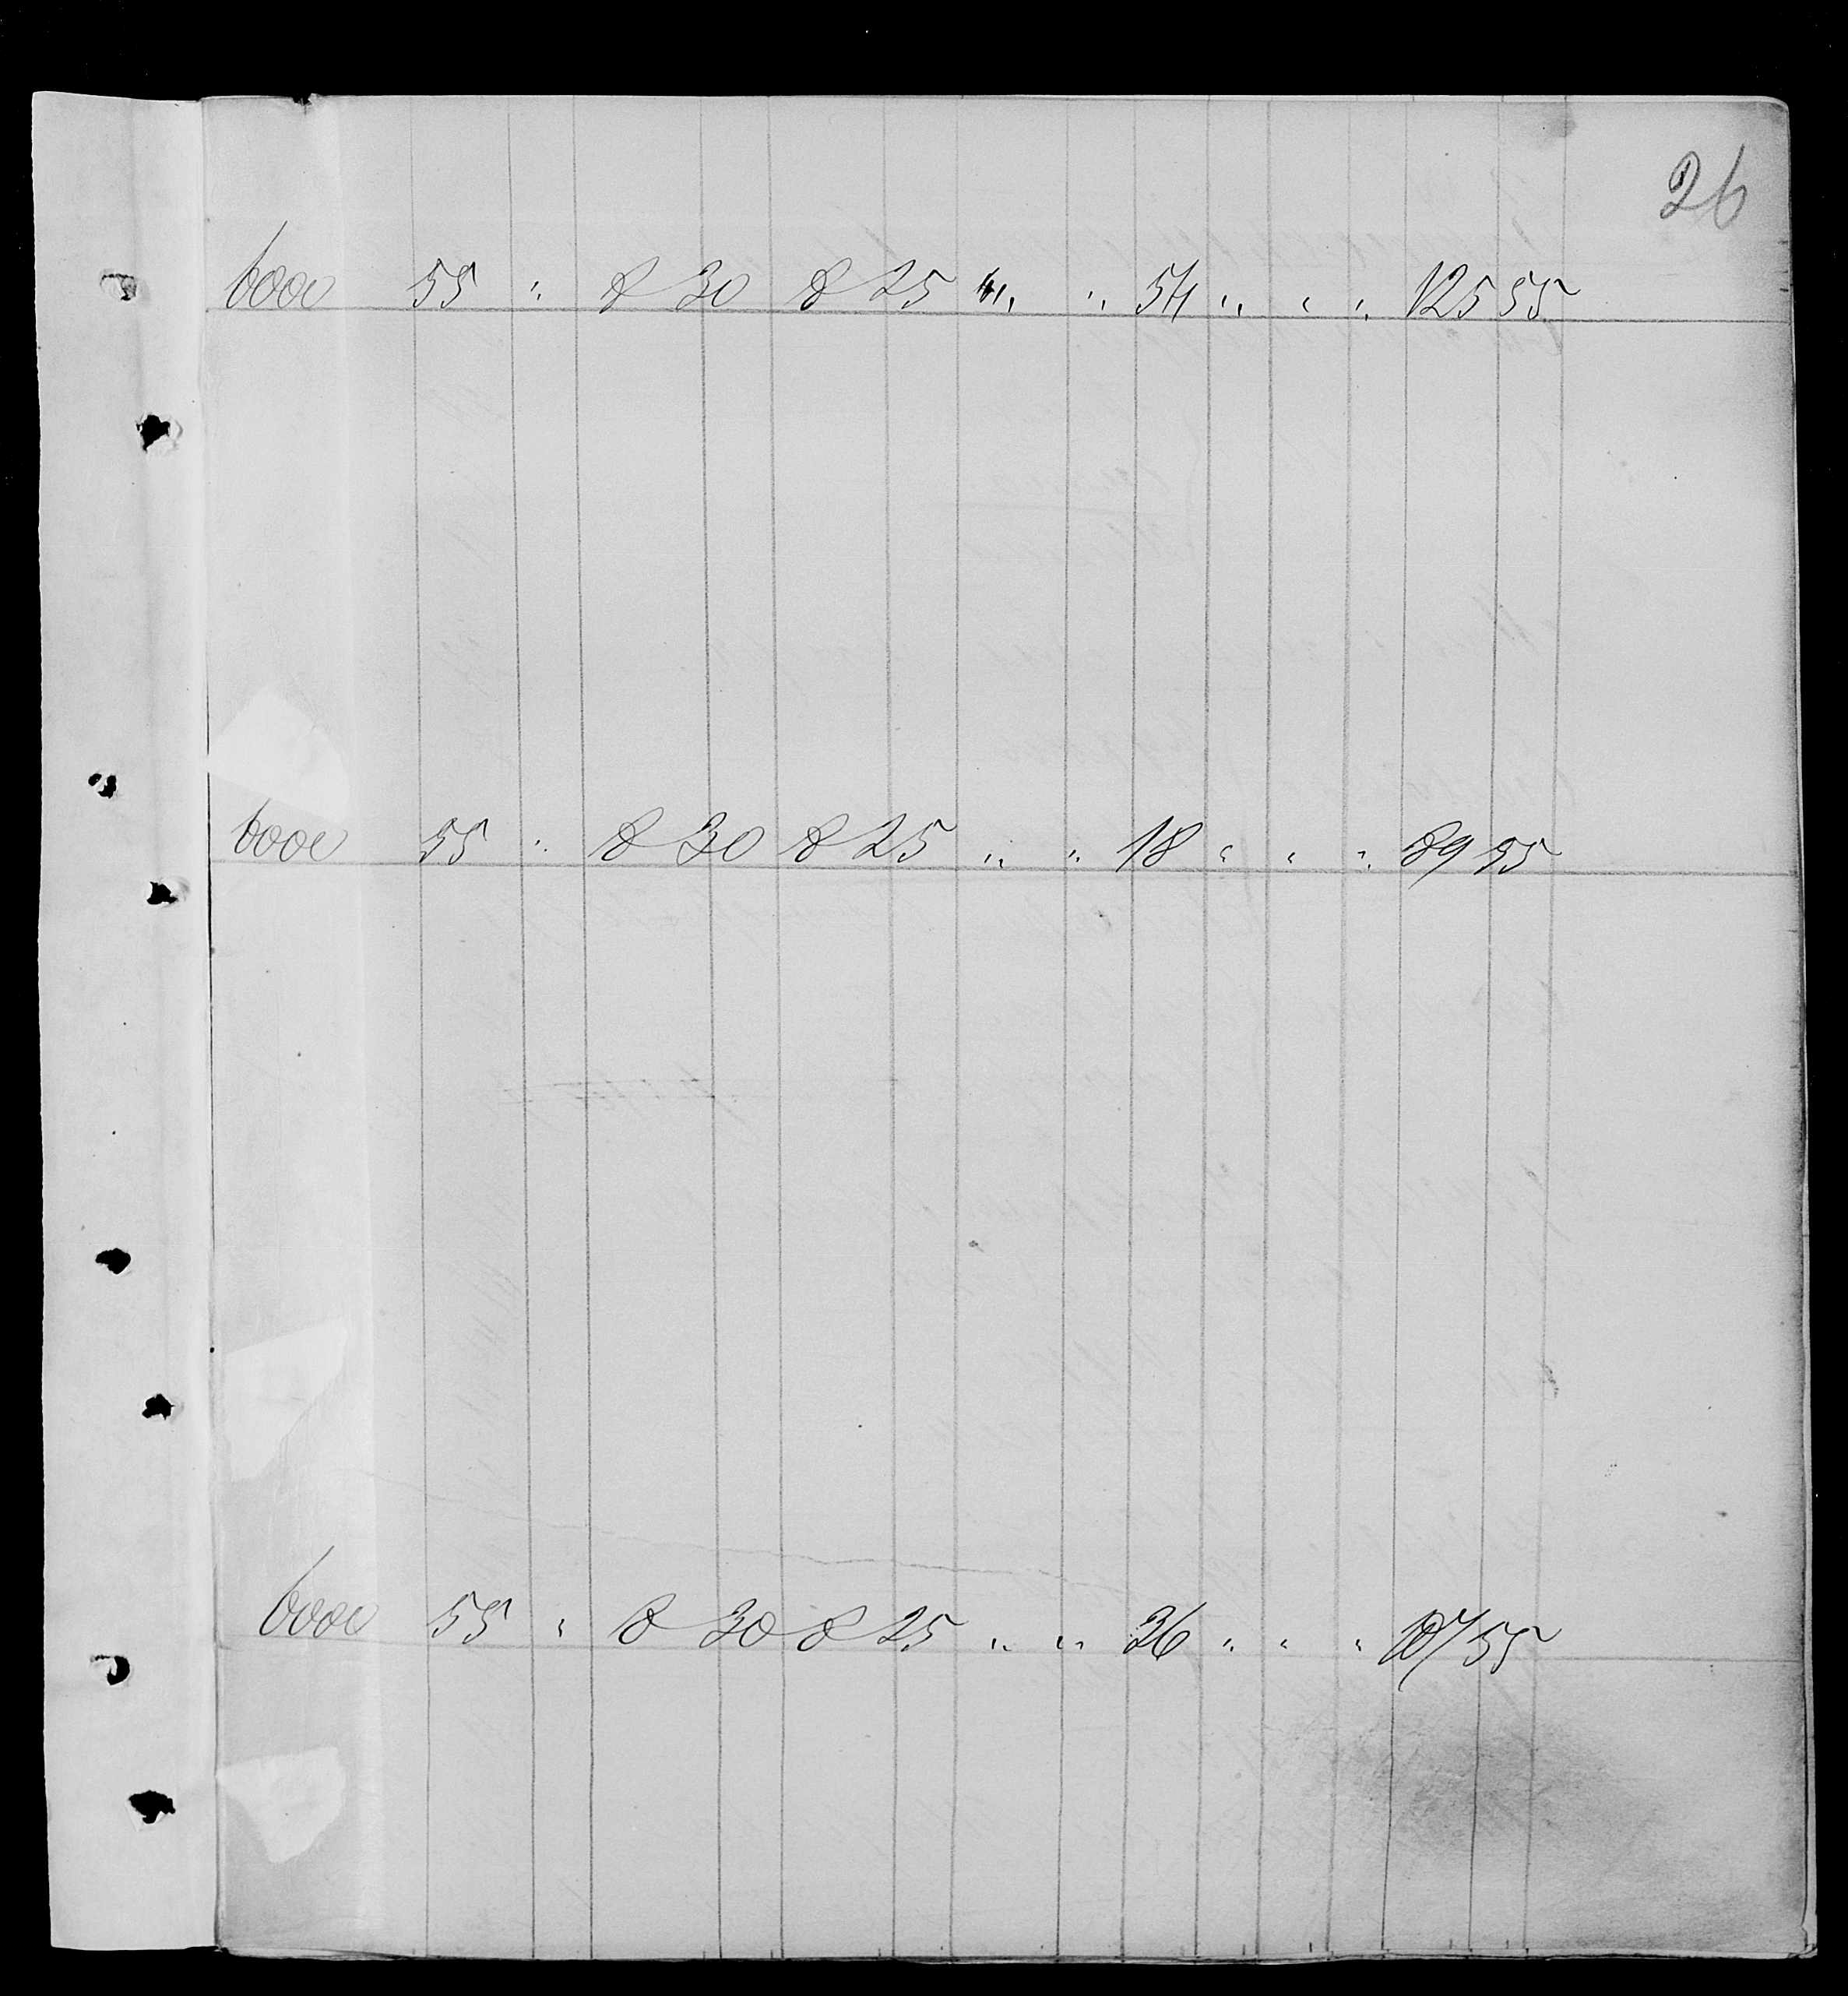 26
6000 55 " 8 30 8 25 " " 54 " " " 125 55
6000 55 " 8 30 8 25 " " 18 " " " 89 55
6000 55 " 8 30 8 25 " " 36 " " " 107 55